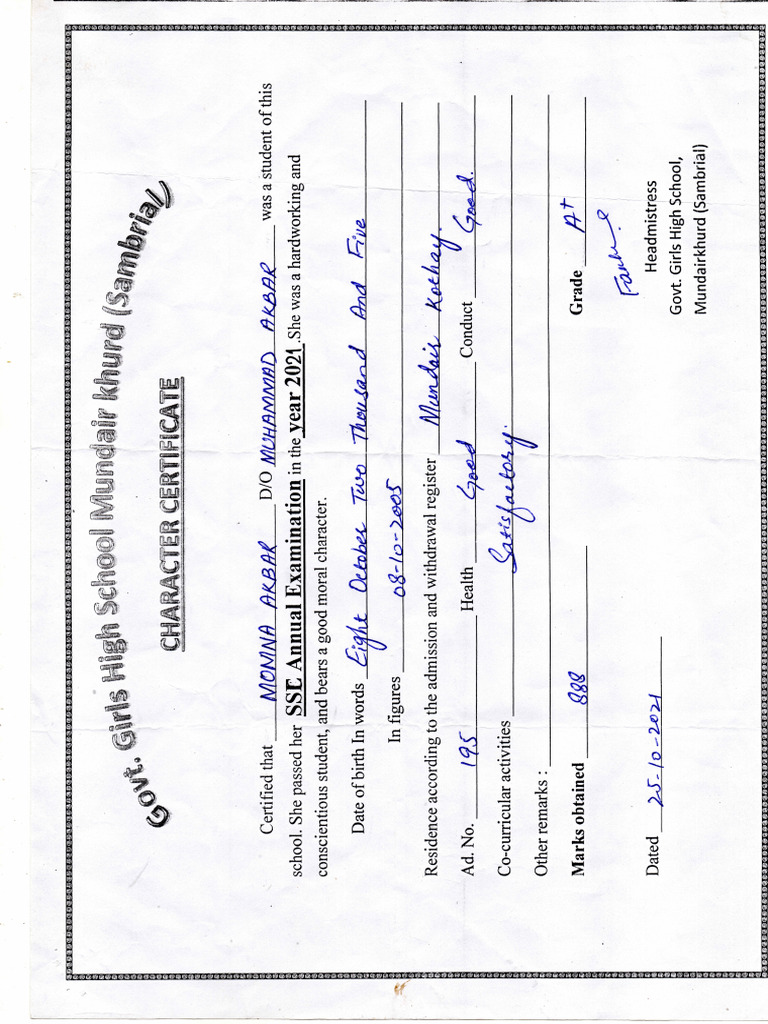 Govt. Girls High School Mundair khurd (Sambrial)
CHARACTER CERTIFICATE
Certified that MOMNA AKBAR D/O MUHAMMAD AKBAR was a student of this
school. She passed her SSE Annual Examination in the year 2021.She was a hardworking and
conscientious student, and bears a good moral character.
Date of birth In words Eight October Two Thousand And Five
In figures 08-10-2005
Residence according to the admission and withdrawal register Mundair Kothay.
Ad. No. 195 Health Good Conduct Good.
Co-curricular activities Satisfactory.
Other remarks :
Marks obtained 888 Grade A+
Dated 25-10-2021
Headmistress
Govt. Girls High School,
Mundairkhurd (Sambrial)